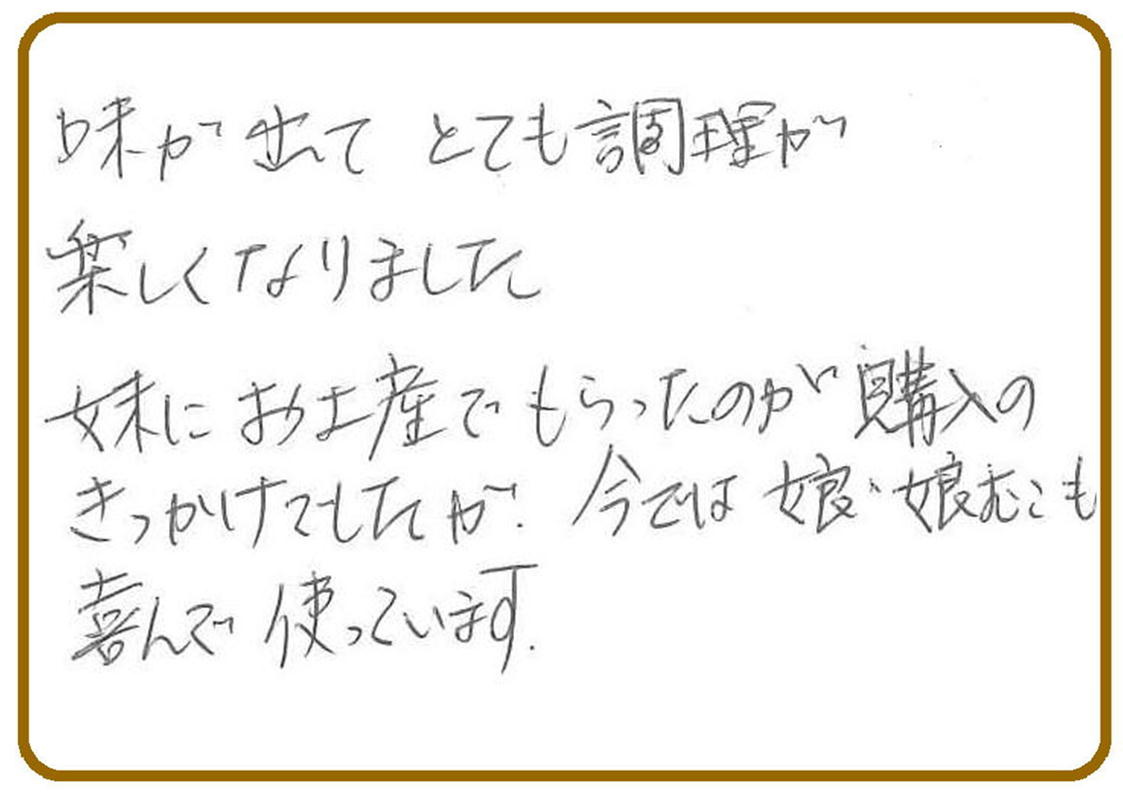 味が出て とても調理が
楽しくなりました
妹にお土産でもらったのが購入の
きっかけでしたが、今では 娘・娘むこも
喜んで 使っています.